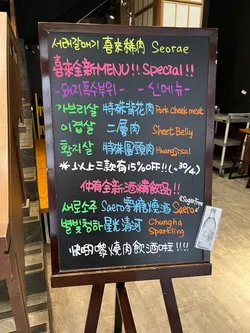 서래갈매기 喜來豬肉 Seorae
喜來全新MENU!! Special!!
-돼지특수부위- -신메뉴-
가브리살 特殊背花肉 Pork cheek meat
이겹살 二層肉 Sheet Belly
항지살 特殊圈頭肉 Huangjisal
*以上三款有15%OFF!! (~30/4)
仲有全新酒精飲品!!
새로소주 Saero零糖燒酒 Saero
*Sugar Free
별빛청하 星光清河 Chungha Sparkling
快啲嚟燒肉飲酒啦!!!